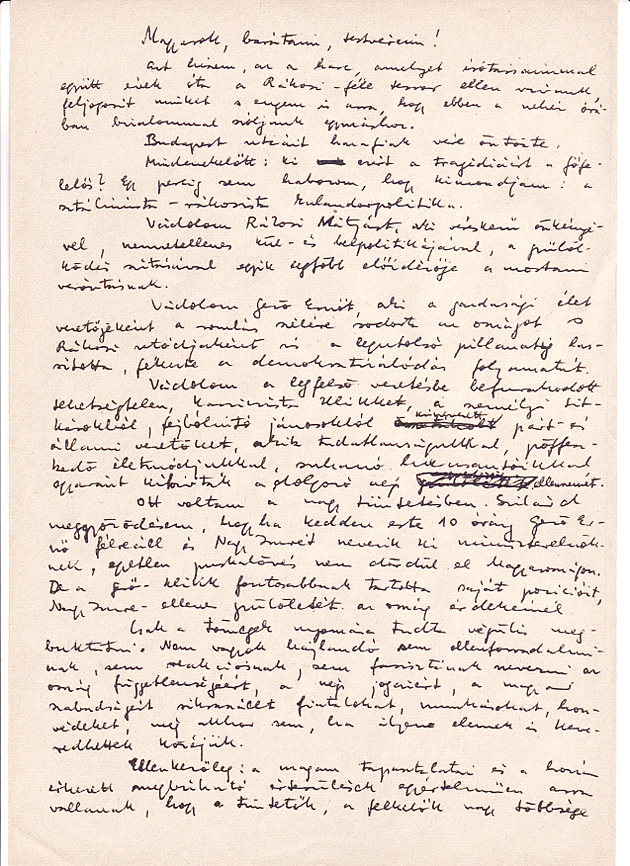 Magyarok, barátaim, testvéreim!
Azt hiszem, az a harc, amelyet írótársaimmal
együtt évek óta a Rákosi-féle terror ellen vívunk,
feljogosít minket s engem is arra, hogy ebben a nehéz órá-
ban bizalommal szóljunk egymáshoz.
Budapest utcáit hazafiak vére öntözte.
Mindenekelőtt: ki ezért a tragédiáért a főfe-
lelős? Egy percig sem habozom, hogy kimondjam: a
sztálinista-rákosista kalandorpolitika.
Vádolom Rákosi Mátyást, aki véreskezű önkényé-
vel, nemzetellenes kül- és belpolitikájával, a gyűlöl-
ködés szításával egyik legfőbb előidézője a mostani
vérontásnak.
Vádolom Gerő Ernőt, aki a gazdasági élet
vezetőjeként a romlás szélére sodorta az országot s
Rákosi utódjaként is a legutolsó pillanatig las-
sította, fékezte a demokratizálódás folyamatát.
Vádolom a legfelső vezetésbe befurakodott
tehetségtelen, karrierista klikket, a személyi tit-
károkból, fejbólintó jánosokból kikerült párt- és
állami vezetőket, akik tudatlanságukkal, pöffesz-
kedő életmódjukkal, luxusautóikkal
egyaránt kihívták a dolgozó nép ellenszenvét.
Ott voltam a nagy tüntetésben. Szilárd
meggyőződésem, hogy ha kedden este 10 óráig Gerő Er-
nő félreáll és Nagy Imrét nevezik ki miniszterelnök-
nek, egyetlen puskalövés nem dördül el Magyarországon.
De a Gerő-klikk fontosabbnak tartotta saját pozícióit,
Nagy Imre-ellenes gyűlöletét az ország érdekeinél.
Csak a tömegek nyomása tudta végülis meg-
buktatni. Nem vagyok hajlandó sem ellenforradalmi-
nak, sem reakciósnak, sem fasisztának nevezni az
ország függetlenségéért, a nép jogaiért, a magyar
szabadságért síkraszállt fiatalokat, munkásokat, hon-
védeket, még akkor sem, ha ilyen elemek is keve-
redhettek közéjük.
Ellenkezőleg: a magam tapasztalatai és a hozzám
érkezett megbízható értesülések egyértelműen arra
vallanak, hogy a tüntetők, a felkelők nagy többsége